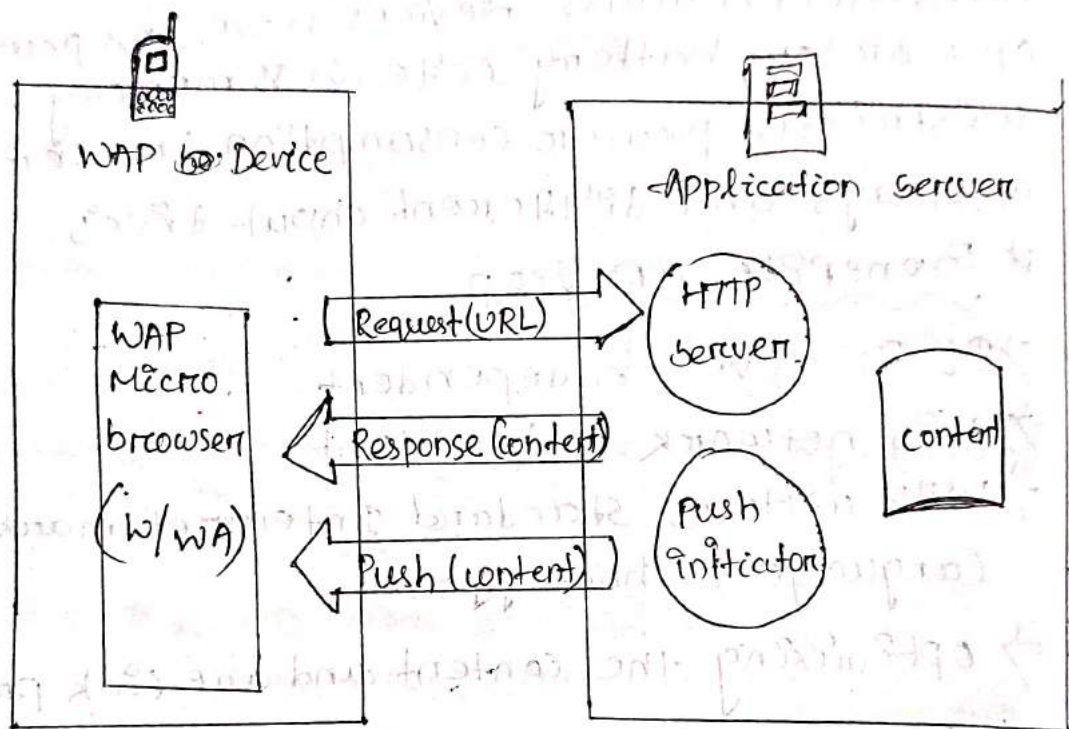 WAP Device
Application server
WAP
Micro
browser
(W/WA)
Request (URL)
Response (content)
Push (content)
HTTP
server
Push
initiator
content